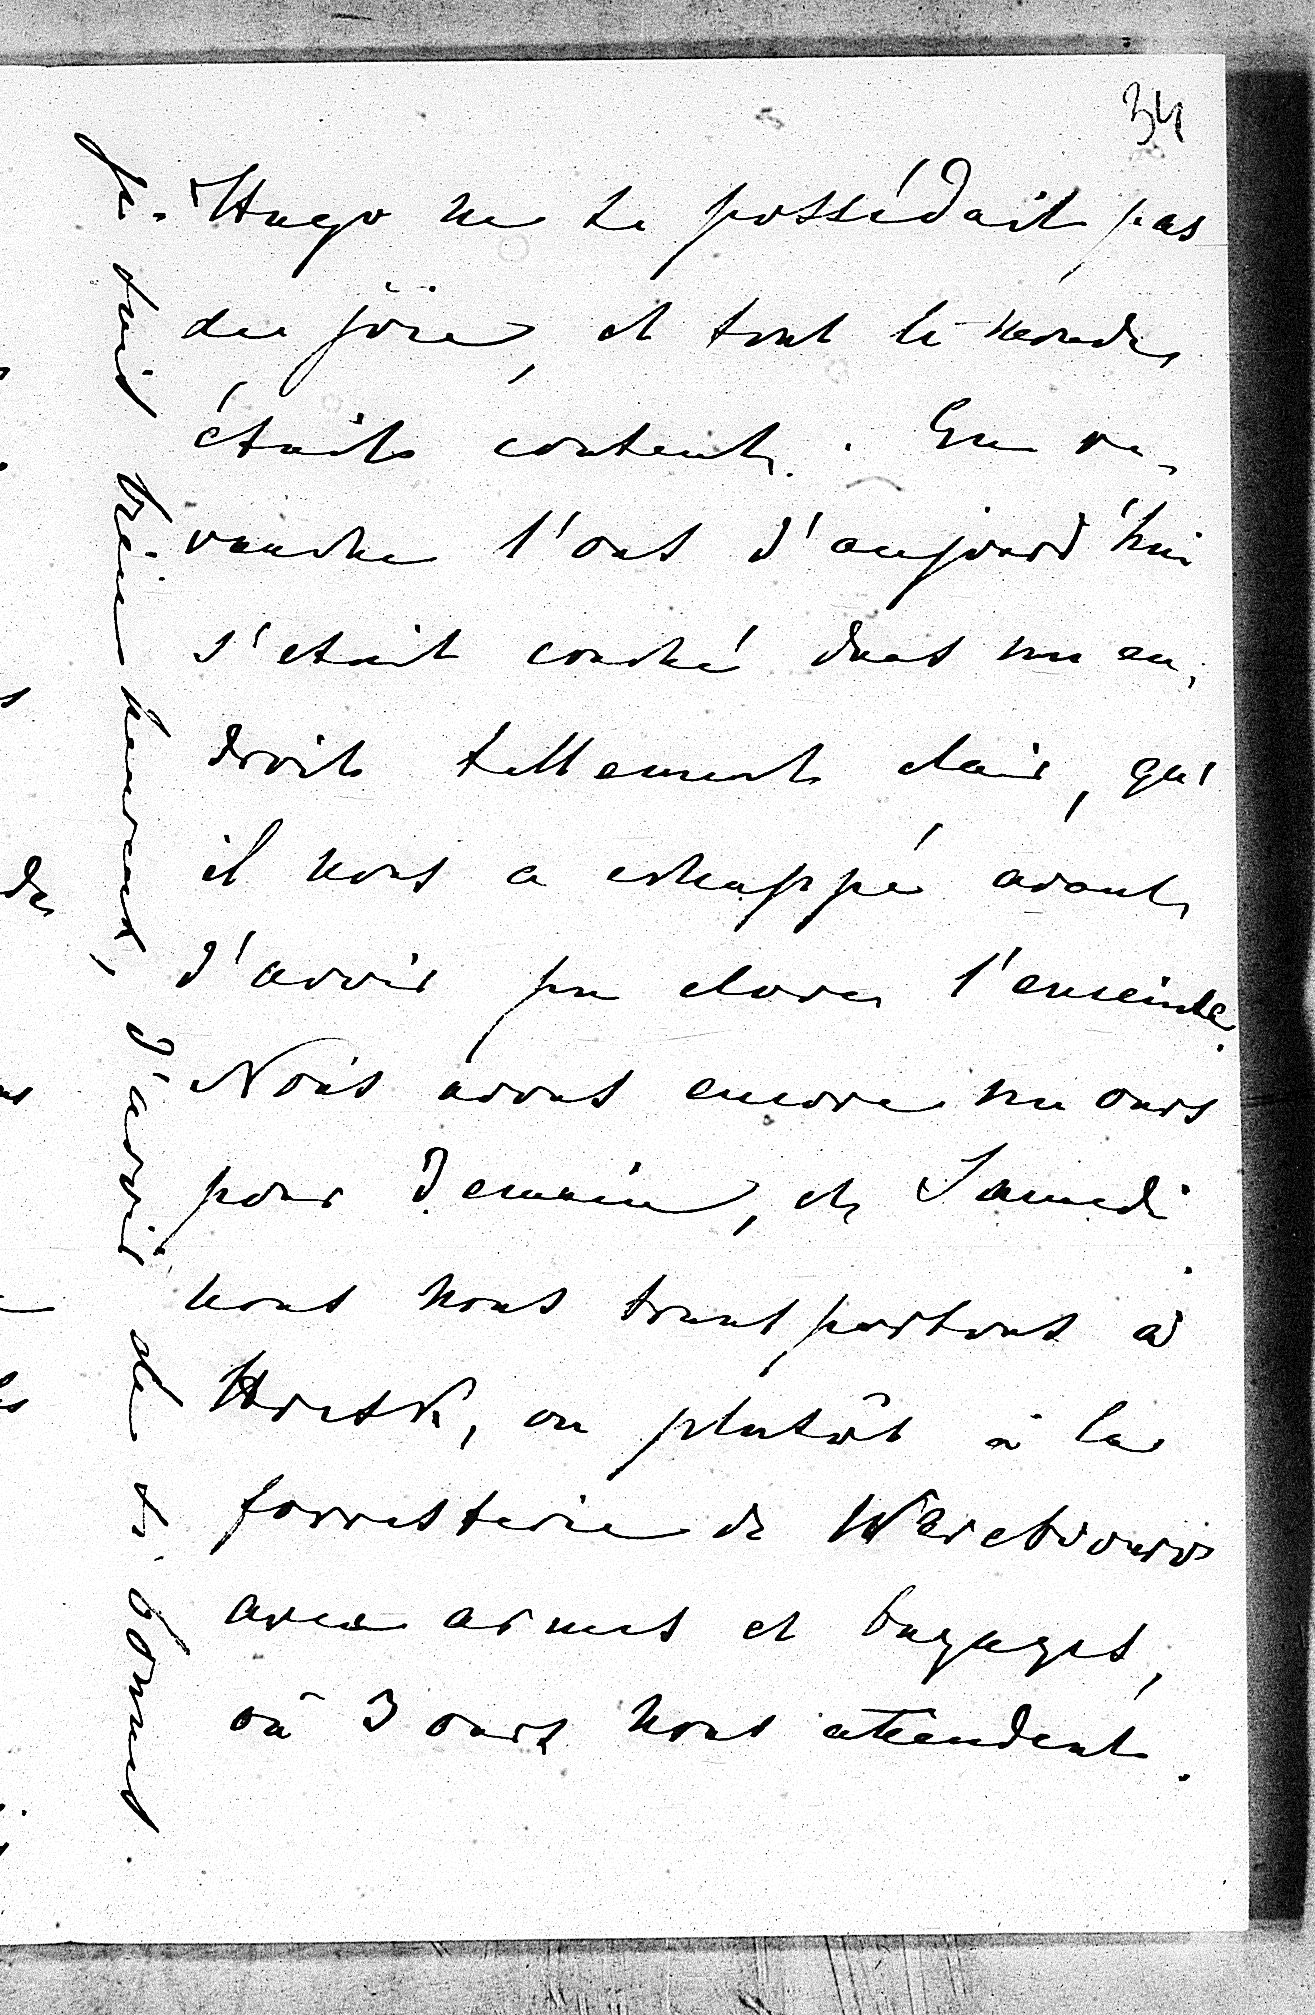 34
Hugo ne se possédait pas
de joie, et tout le monde
était content. En re-
vanche l'ours d'aujourd'hui
s'etait couché dans un en-
droit tellement clair, qu'
il nous a echappé avant
d'avoir pu clore l'enceinte.
Nous avons encore un ours
pour demain, et Samedi
nous nous transportons à
ou plutôt à la
forresterie de
avec armes et bagages,
où 3 ours nous attendent.
Je suis bien heureux, d'avoir de si bonnes